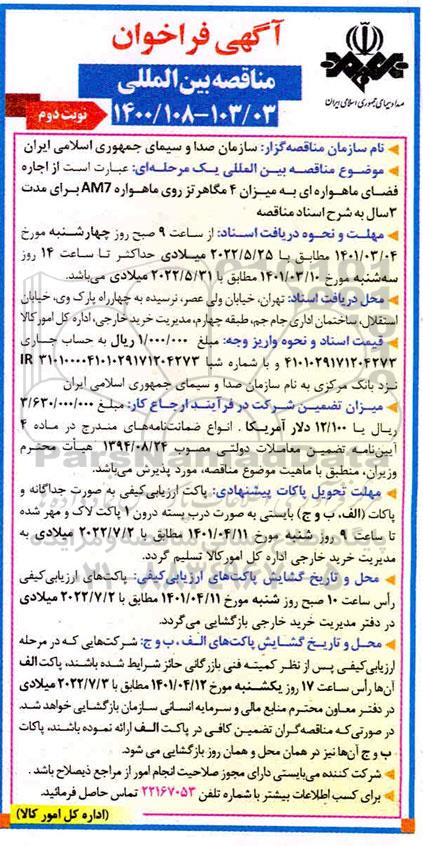 آگهی فراخوان
مناقصه بین‌المللی
۱۴۰۰/۱۰۸-۱۰۳/۰۳
نوبت دوم
صدا و سیمای جمهوری اسلامی ایران
نام سازمان مناقصه‌گزار: سازمان صدا و سیمای جمهوری اسلامی ایران
موضوع مناقصه بین المللی یک مرحله‌ای: عبارت است از اجاره
فضای ماهواره ای به میزان ۴ مگاهرتز روی ماهواره AM7 برای مدت
۳سال به شرح اسناد مناقصه
مهلت و نحوه دریافت اسناد: از ساعت ۹ صبح روز چهارشنبه مورخ
۱۴۰۱/۰۳/۰۴ مطابق با ۲۰۲۲/۵/۲۵ میلادی حداکثر تا ساعت ۱۴ روز
سه‌شنبه مورخ ۱۴۰۱/۰۳/۱۰ مطابق با ۲۰۲۲/۵/۳۱ میلادی می‌باشد.
محل دریافت اسناد: تهران، خیابان ولی عصر، نرسیده به چهارراه پارک وی، خیابان
استقلال، ساختمان اداری جام جم، طبقه چهارم، مدیریت خرید خارجی، اداره کل امور کالا
قیمت اسناد و نحوه واریز وجه: مبلغ ۱/۰۰۰/۰۰۰ ریال به حساب جاری
۴۱۰۱۰۲۹۱۷۱۲۰۴۲۷۳ و با شماره شبا IR ۳۱۰۱۰۰۰۰۴۱۰۱۰۲۹۱۷۱۲۰۴۲۷۳
نزد بانک مرکزی به نام سازمان صدا و سیمای جمهوری اسلامی ایران
میزان تضمین شرکت در فرآیند ارجاع کار: مبلغ ۳/۶۳۰/۰۰۰/۰۰۰
ریال یا ۱۲/۱۰۰ دلار آمریکا . انواع ضمانت‌نامه‌های مندرج در ماده ۴
آیین‌نامه تضمین معاملات دولتی مصوب ۱۳۹۴/۰۸/۲۴ هیأت محترم
وزیران، منطبق با ماهیت موضوع مناقصه، مورد پذیرش می‌باشد.
مهلت تحویل پاکات پیشنهادی: پاکت ارزیابی‌کیفی به صورت جداگانه و
پاکات (الف، ب و ج) بایستی به صورت درب بسته درون ۱ پاکت لاک و مهر شده
تا ساعت ۹ روز شنبه مورخ ۱۴۰۱/۰۴/۱۱ مطابق با ۲۰۲۲/۷/۲ میلادی به
مدیریت خرید خارجی اداره کل امور کالا تسلیم گردد.
محل و تاریخ گشایش پاکت‌های ارزیابی‌کیفی: پاکت‌های ارزیابی‌کیفی
رأس ساعت ۱۰ صبح روز شنبه مورخ ۱۴۰۱/۰۴/۱۱ مطابق با ۲۰۲۲/۷/۲ میلادی
در دفتر مدیریت خرید خارجی بازگشایی می‌گردد.
محل و تاریخ گشایش پاکت‌های الف، ب و ج: شرکت‌هایی که در مرحله
ارزیابی‌کیفی پس از نظر کمیته فنی بازرگانی حائز شرایط شده باشند، پاکت الف
آن‌ها رأس ساعت ۱۷ روز یکشنبه مورخ ۱۴۰۱/۰۴/۱۲ مطابق با ۲۰۲۲/۷/۳ میلادی
در دفتر معاون محترم منابع مالی و سرمایه انسانی سازمان بازگشایی خواهد شد.
در صورتی‌که مناقصه‌گران تضمین کافی در پاکت الف ارائه نموده باشند، پاکات
ب و ج آن‌ها نیز در همان محل و همان روز بازگشایی می شود.
شرکت کننده می‌بایستی دارای مجوز صلاحیت انجام امور از مراجع ذیصلاح باشد .
برای کسب اطلاعات بیشتر با شماره تلفن ۲۲۱۶۷۰۵۳ تماس حاصل فرمائید.
(اداره کل امور کالا)